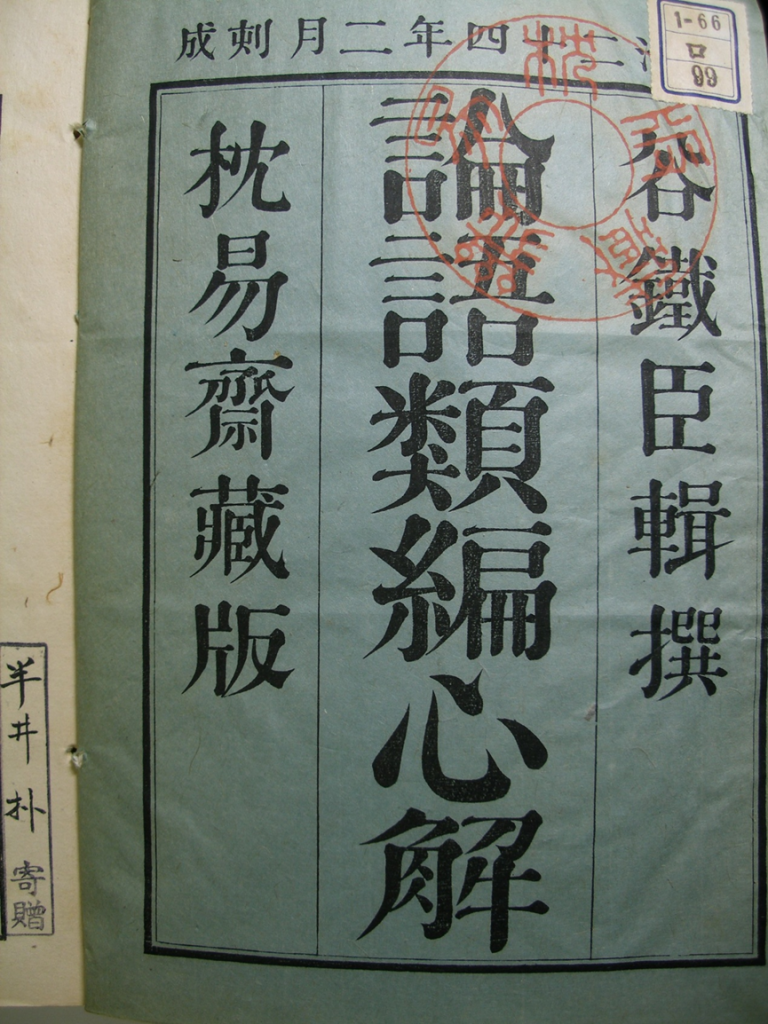 二十四年二月刻成
谷鐵臣輯撰
論語類編心解
枕易齋藏版
1-66
ロ
99
半井朴寄贈